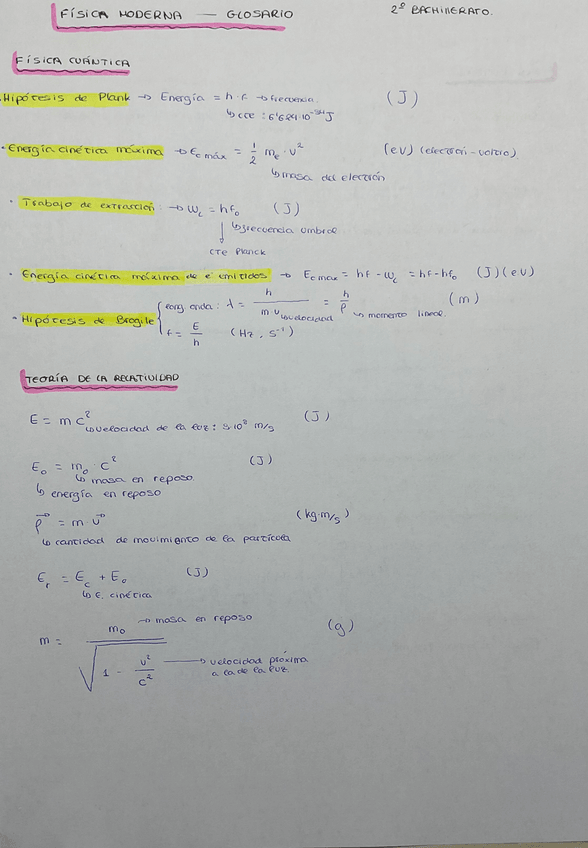 FÍSICA MODERNA — GLOSARIO 2º BACHILLERATO.
FÍSICA CUÁNTICA
· Hipótesis de Plank → Energía = h · f → frecuencia (J)
↳ CTE : 6'624·10⁻³⁴ J
· Energía cinética máxima → Ec máx = 1/2 me · v² (eV) (electrón-voltio)
↳ masa del electrón
· Trabajo de extracción : → WL = hf₀ (J)
↳ frecuencia umbral
↓
CTE Planck
· Energía cinética máxima de e⁻ emitidos → Ec max = hf - WL = hf - hf₀ (J) (eV)
· Hipótesis de Brogile { long onda: λ = h / m·v = h / p (m)
↳ velocidad ↳ momento lineal.
f = E / h (Hz, s⁻¹)
TEORÍA DE LA RELATIVIDAD
E = m c² (J)
↳ velocidad de la luz : 3·10⁸ m/s
E₀ = m₀ · c² (J)
↳ masa en reposo
↳ energía en reposo
p⃗ = m · v⃗ (kg·m/s)
↳ cantidad de movimiento de la partícula
Er = Ec + E₀ (J)
↳ E. cinética
m = m₀ / √(1 - v²/c²) (g)
→ masa en reposo
→ velocidad próxima
a la de la luz